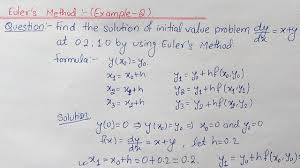 Euler's Method :- (Example-2)
Question:- Find the solution of initial value problem dy/dx = x+y
at 0.2, 1.0 by using Euler's Method
formula:- y(x₀) = y₀
x₁ = x₀+h y₁ = y₀+hf(x₀,y₀)
x₂ = x₁+h y₂ = y₁+hf(x₁,y₁)
x₃ = x₂+h y₃ = y₂+hf(x₂,y₂)
Solution
y(0)=0 ⇒ y(x₀)=y₀ ⇒ x₀=0 and y₀=0
f(x) = dy/dx = x+y, let h=0.2
x₁ = x₀+h = 0+0.2 = 0.2, y₁ = y₀+hf(x₀,y₀)